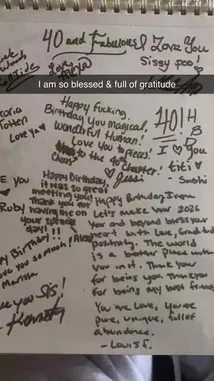 40 and Fabulous
I Love You
Sissy poo!
I am so blessed & full of gratitude
Happy fucking
Birthday You magical,
wonderful Human!
Love You to Pieces!
to the 40's
Chapter!
Jessi
40!
H
B
D
I ♡ you
titi ♡
- Suchi
Love Ya ♥
Happy Birthday,
it was so great
meeting you!
Thank you for
having me on
your special
day!!!
Ruby
E you
Happy Birthday
Let's make your 2026
Year and beyond bless your
with Love, Gratitude
positivity. The world
is a better place with
you in it. Thank you
for being you. Thank you
for being my best friend
You are Love, you are
pure, unique, full of
abundance.
- Louis F.
Birthday!!
you so much!
Marissa
you Sis!
- Kennedy